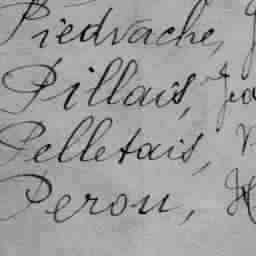 Piedvache,
Pillais, Jea
Pelletais,
Perou,